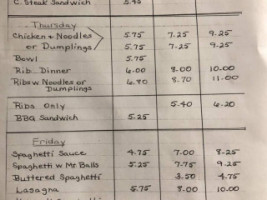 C. Steak Sandwich 5.45
Thursday
Chicken & Noodles 5.75 7.25 9.25
or Dumplings 5.75 7.25 9.25
Bowl 5.75
Rib Dinner 6.00 8.00 10.00
Rib w Noodles or 6.80 8.70 11.00
Dumplings
Ribs Only 5.40 6.20
BBQ Sandwich 5.25
Friday
Spaghetti Sauce 4.75 7.00 8.25
Spaghetti w Mt Balls 5.25 7.75 9.25
Buttered Spaghetti 3.50 4.75
Lasagna 5.75 8.00 10.00